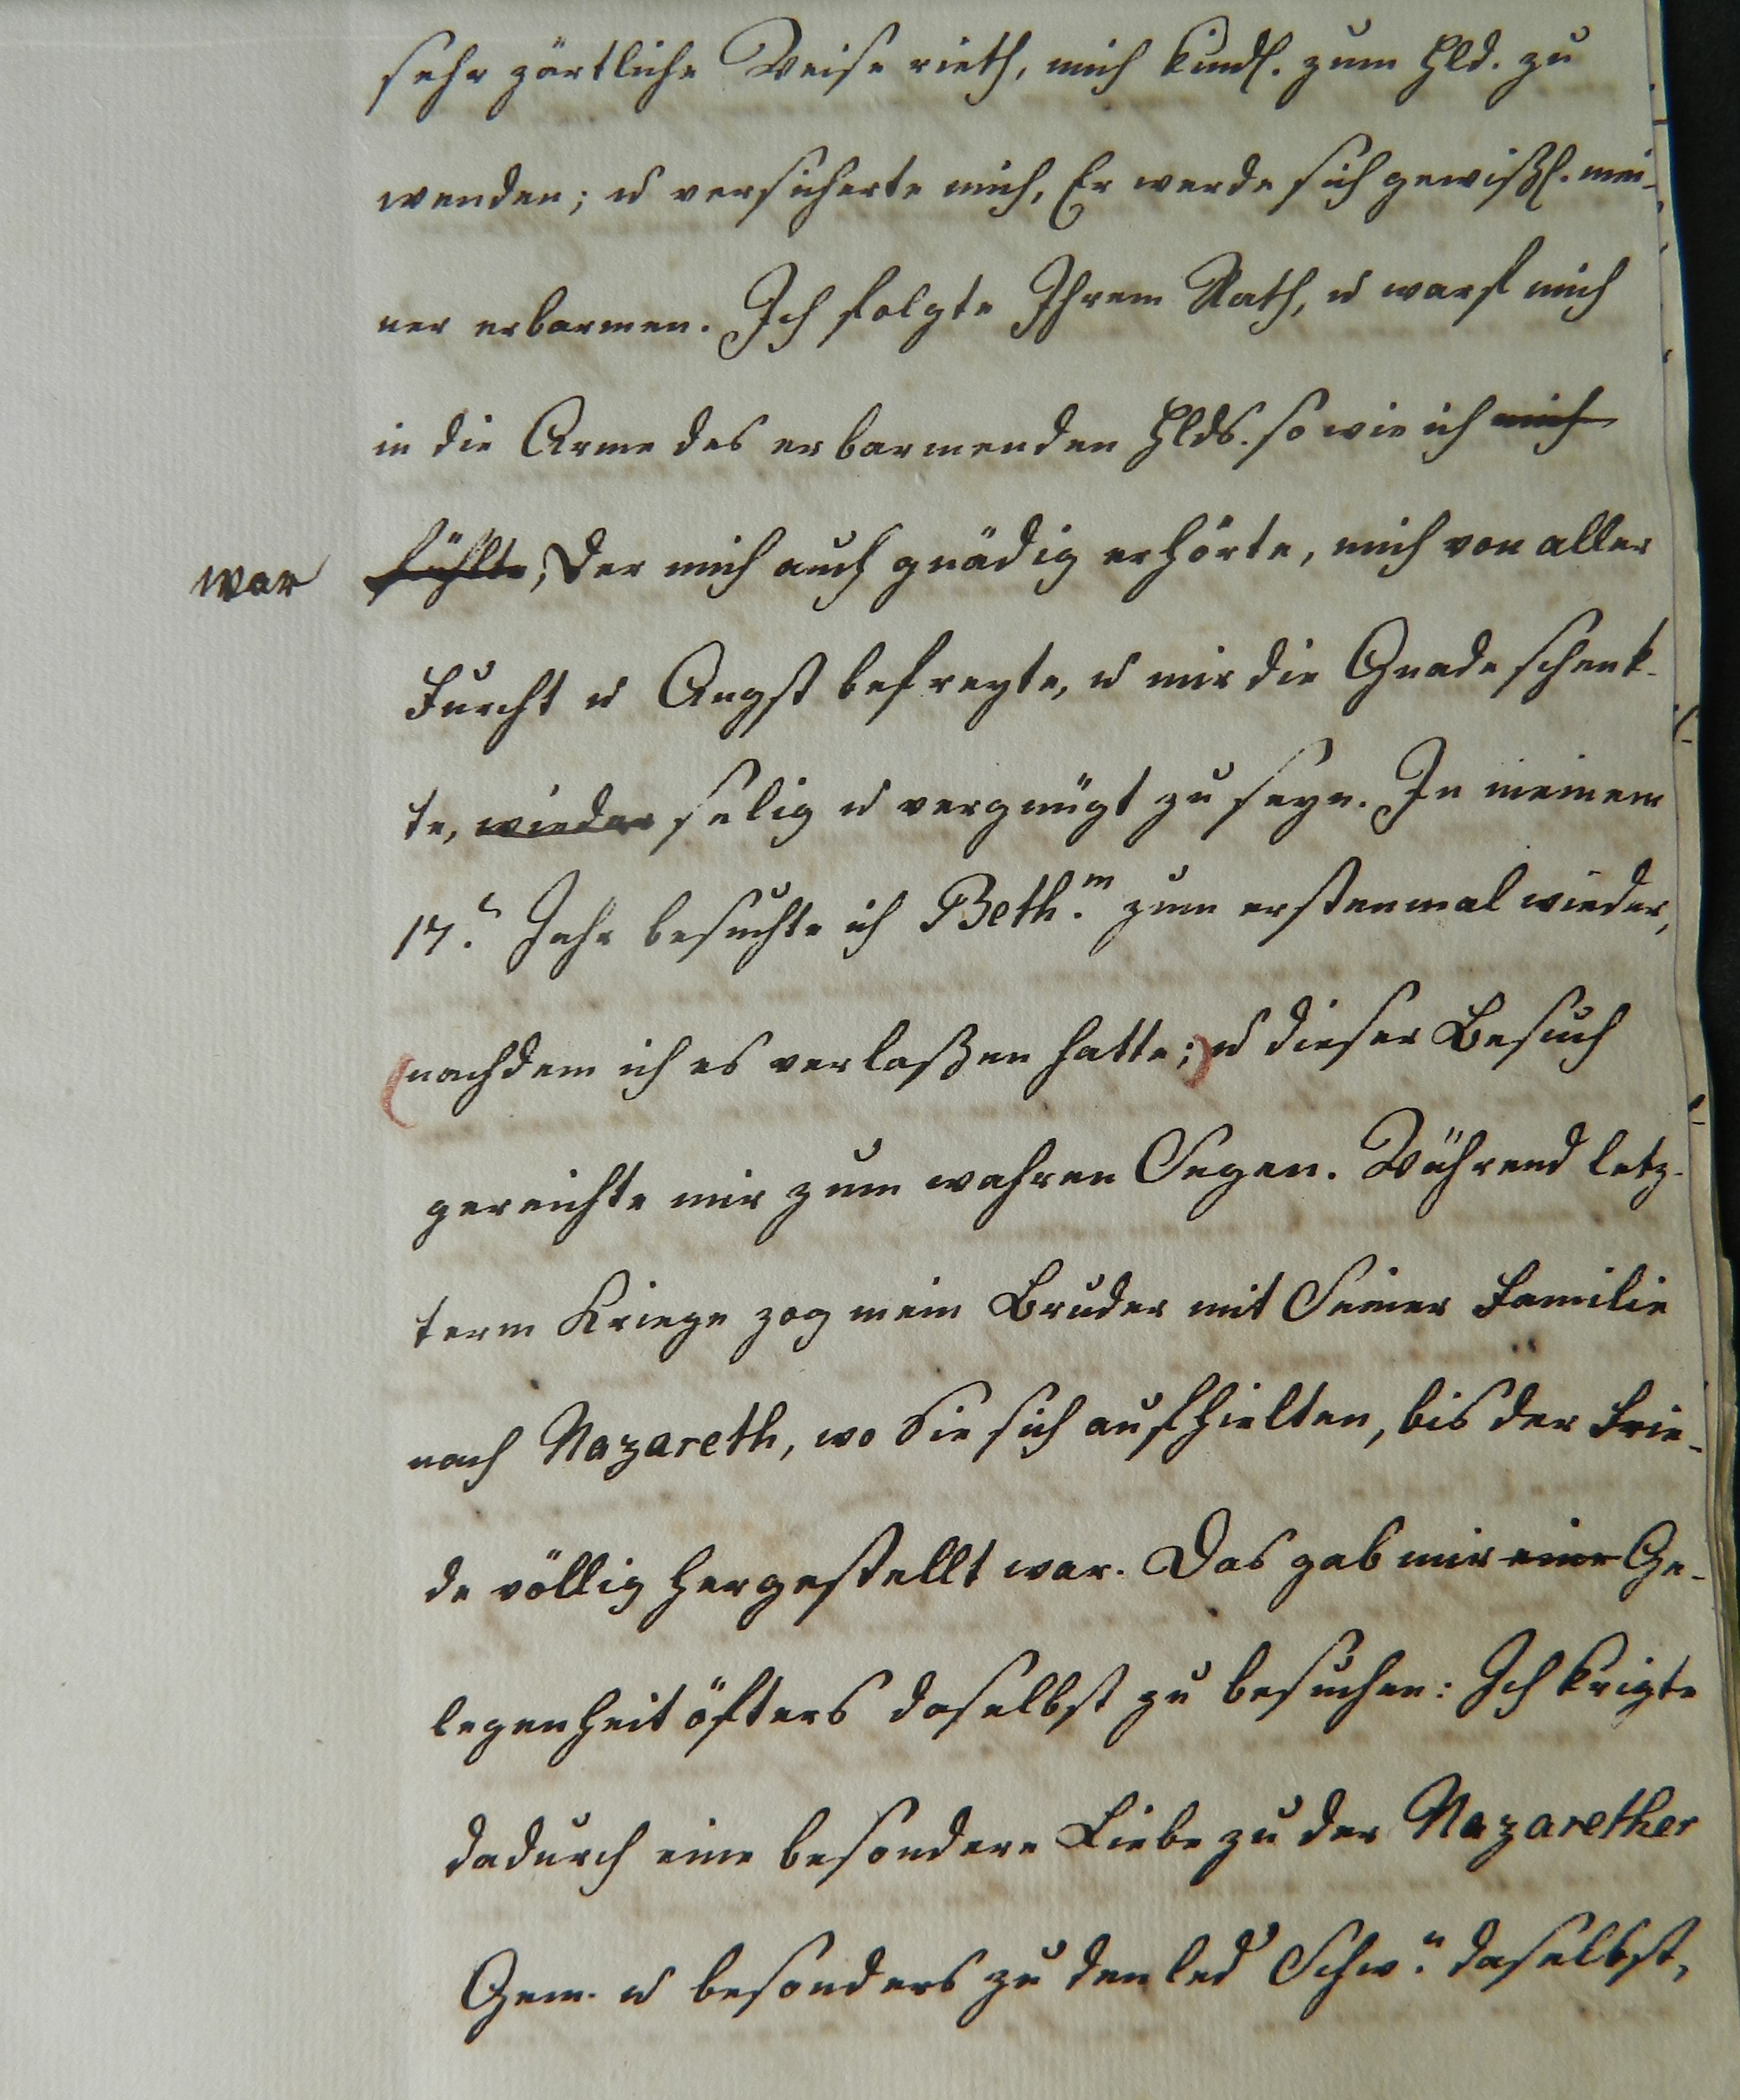 sehr zärtliche Weise rieth, mich kindl. zum Hld. zu
wenden; u versicherte mich, Er werde sich gewißl. mei-
ner erbarmen. Ich folgte Ihrem Rath, u warf mich
in die Arme des erbarmenden Hlds. so wie ich mich
war fühlte; Der mich auch gnädig erhörte, mich von aller
Furcht u Angst befreyte, u mir die Gnade schenk-
te, wieder selig u vergnügt zu seyn. In meinem
17.n Jahr besuchte ich Beth.m zum erstenmal wieder,
(nachdem ich es verlaßen hatte;) u dieser Besuch
gereichte mir zum wahren Segen. Während letz-
term Kriege zog mein Bruder mit Seiner Familie
nach Nazareth, wo Sie sich aufhielten, bis der Frie-
de völlig hergestellt war. Das gab mir eine Ge-
legenheit öfters daselbst zu besuchen: Ich krigte
dadurch eine besondere Liebe zu der Nazarether
Gem. u besonders zu den led Schw.n daselbst,